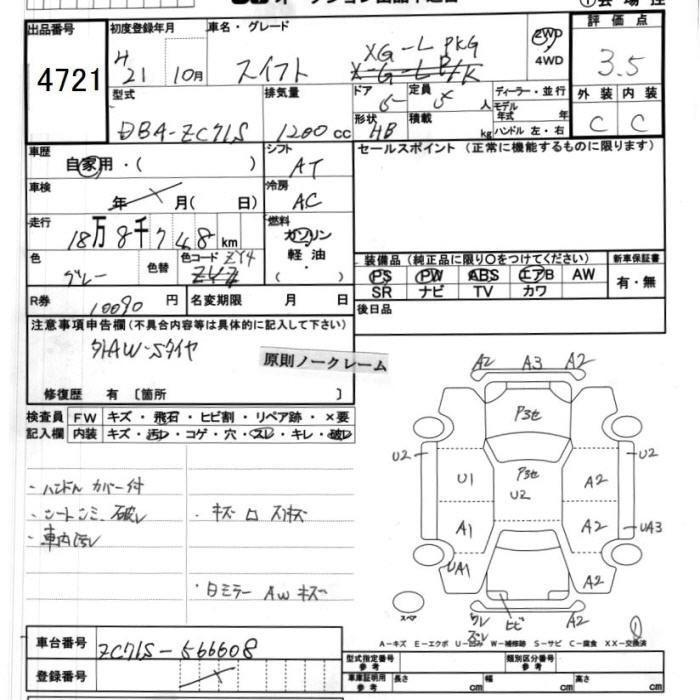 出品番号
4721
初度登録年月
H21 10月
車名・グレード
スイフト
XG-L PKG
2WD
4WD
評価点
3.5
型式
DBA-ZC71S
排気量
1200cc
ドア
5
定員
5人
ディーラー・並行
モデル年式 年
形状
HB
積載
kg
ハンドル 左・右
外装 内装
C C
車歴
自家用・( )
シフト
AT
セールスポイント (正常に機能するものに限ります)
車検
年 月( 日)
冷房
AC
走行
18万8千748km
燃料
ガソリン
軽油
( )
色
グレー
色替
色コード
ZY4
装備品 (純正品に限り○をつけてください)
新車保証書
PS PW ABS エアB AW
SR ナビ TV カワ
有・無
R券
10090円
名変期限 月 日
後日品
注意事項申告欄(不具合内容等は具体的に記入して下さい)
外AW-Sタイヤ
原則ノークレーム
修復歴 有 〔箇所 〕
検査員記入欄
FW キズ・飛石・ヒビ割・リペア跡・×要
内装 キズ・汚レ・コゲ・穴・スレ・キレ・破レ
・ハンドルカバー付
・シートシミ、破レ
・車内汚レ
・キズ
・日ミラー AW キズ
A2 A3 A2
P3セ
U2 U2
P3セ
U1 U2 A2
A1 A2 UA3
UA1 A2
ワレ ヒビ A2
スペア
①
A-キズ E-エクボ U-凹み W-補修跡 S-サビ C-腐食 XX-交換済
車台番号
ZC71S-566608
登録番号
型式指定番号 参考
類別区分番号 参考
車庫証明用 参考
長さ cm
幅 cm
高さ cm